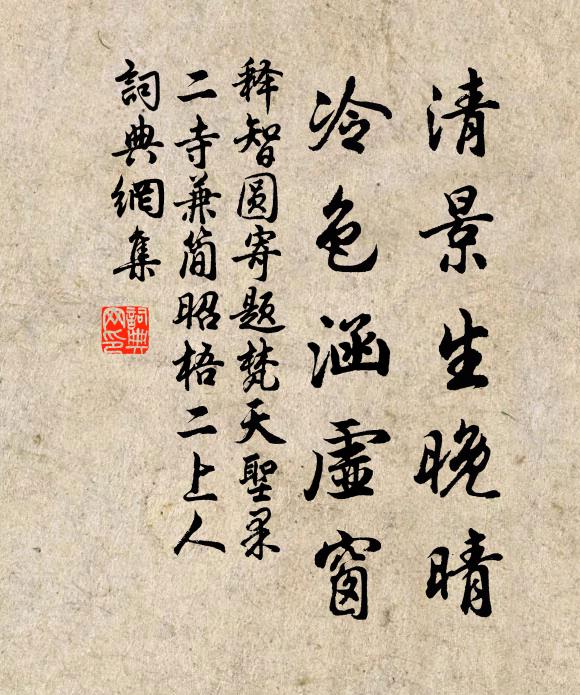 清景生晚晴
冷色涵虛窗
释智圆寄题梵天聖果
二寺兼简昭梧二上人
詞典網集
詞典网印